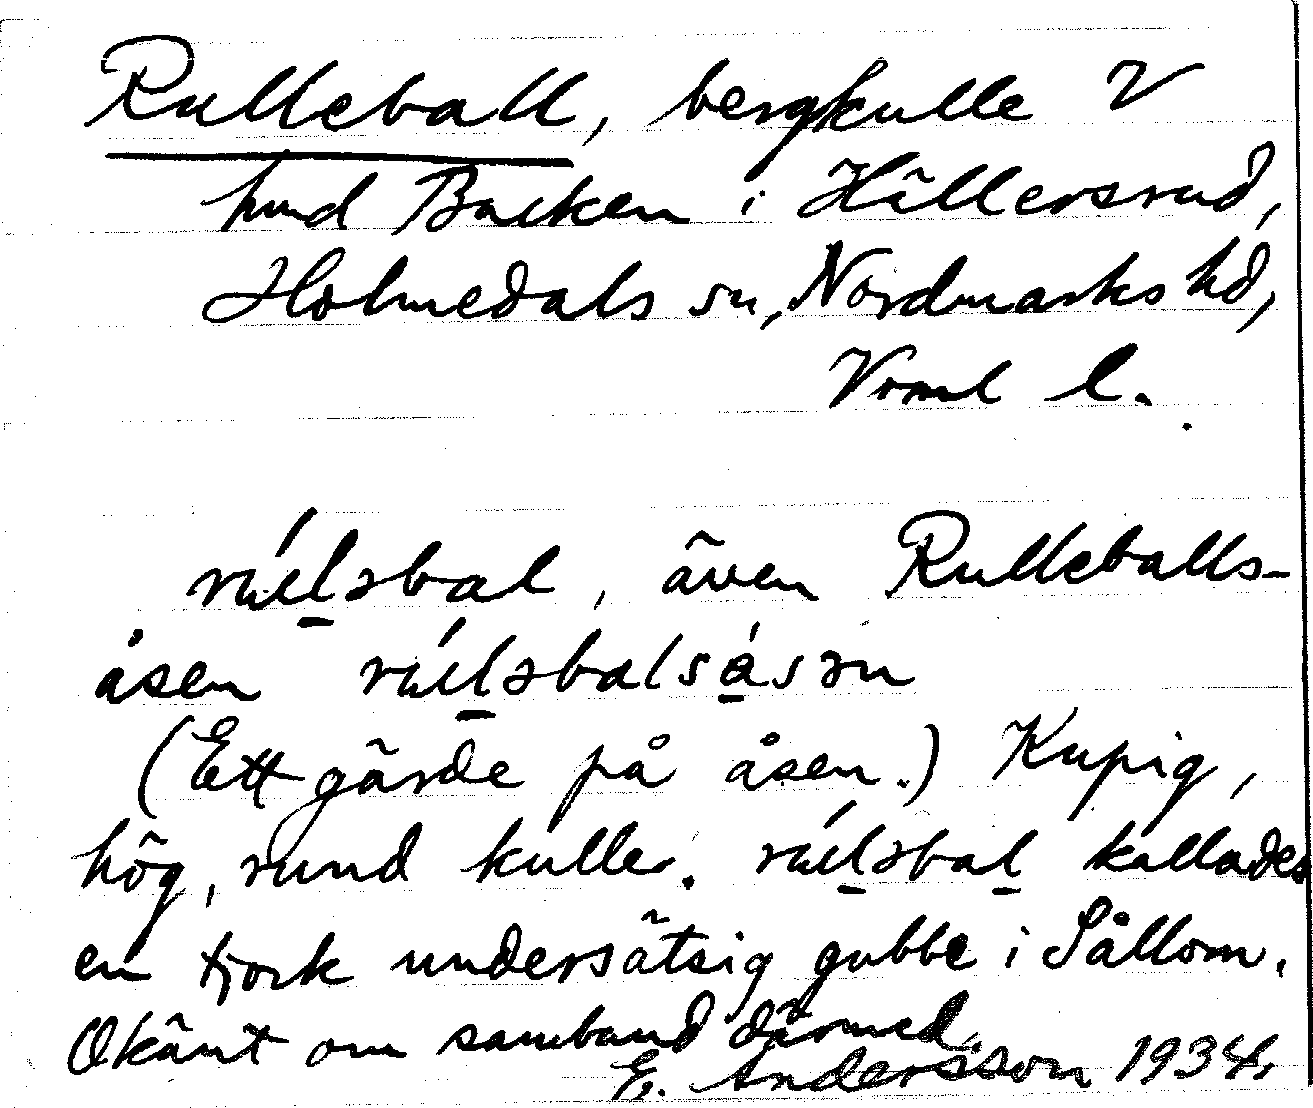 Rulleball, bergkulle V
hmd Backen i Hällersrud,
Holmedals sn, Nordmarks hd,
Vrml l.
rúl̠əbal, även Rulleballs-
åsen rúl̠əbalsa̠̍sən
(Ett gärde på åsen.) Kupig,
hög, rund kulle. rúl̠əbal̠ kallades
en tjock undersätsig gubbe i Sållom.
Okänt om samband därmed.
E. Andersson 1934.